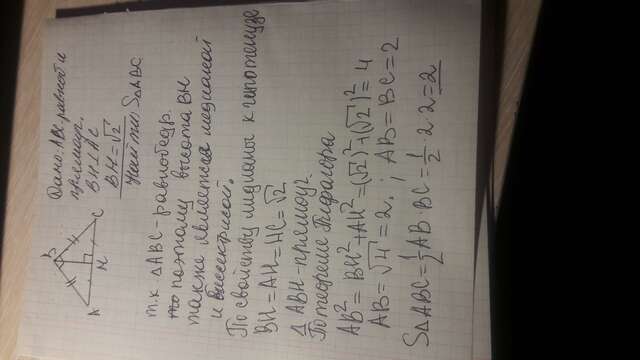 B
A
H
C
Дано: АВС-равноб и
прямоуг.
BH⊥AC
BH=√2
Найти S△ABC
т.к. △ABC-равнобедр.
то поэтому высота BH
также является медианой
и биссектрисой.
По свойству медианы к гипотенузе
BH=AH=HC=√2
△ ABH-прямоуг.
По теореме Пифагора
AB²=BH²+AH²=(√2)²+(√2)²=4
AB=√4=2. ; AB=BC=2
S△ABC=1/2 AB·BC=1/2·2·2=2